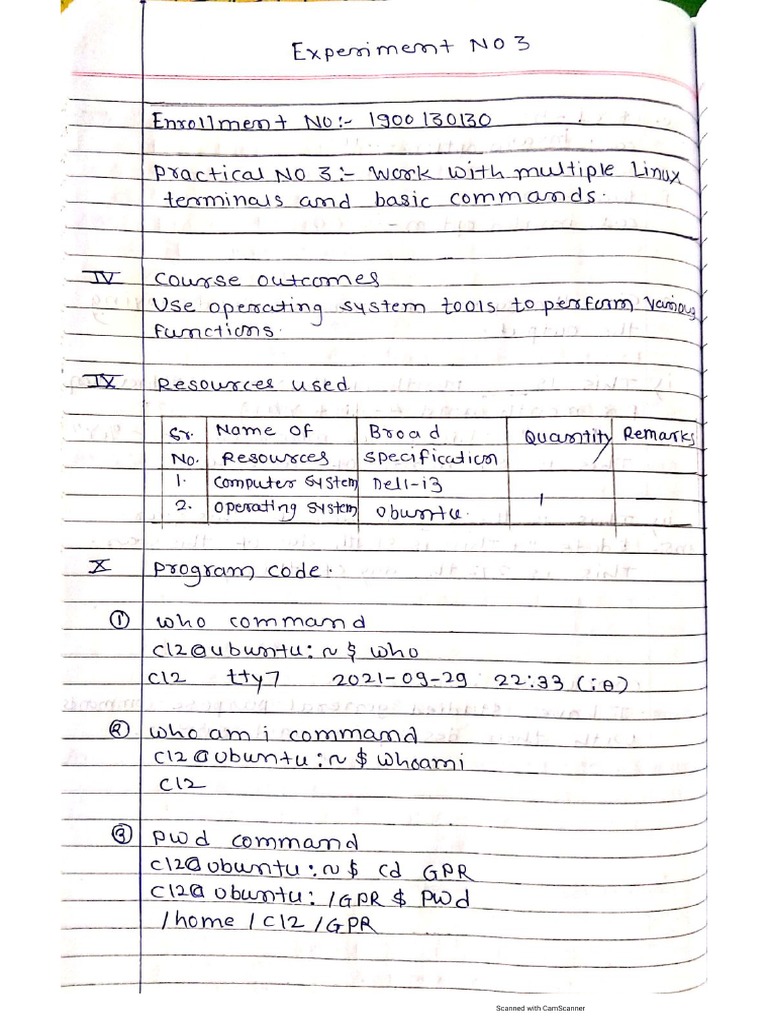 Experiment NO 3
Enrollment NO:- 1900130130
Practical NO 3:- Work with multiple Linux
terminals and basic commands.
IV Course outcomes
Use operating system tools to perform various
functions.
IX Resources used
Sr. Name Of Broad Quantity Remarks
No. Resources specification
1. Computer System Dell-i3
2. Operating System Ubuntu. 1
X Program code.
① who command
cl2@ubuntu:~$ who
cl2 tty7 2021-09-29 22:33 (:0)
② who am i command
cl2@ubuntu:~$ whoami
cl2
③ pwd command
cl2@ubuntu:~$ cd GPR
cl2@ubuntu: /GPR $ pwd
/home/cl2/GPR
Scanned with CamScanner